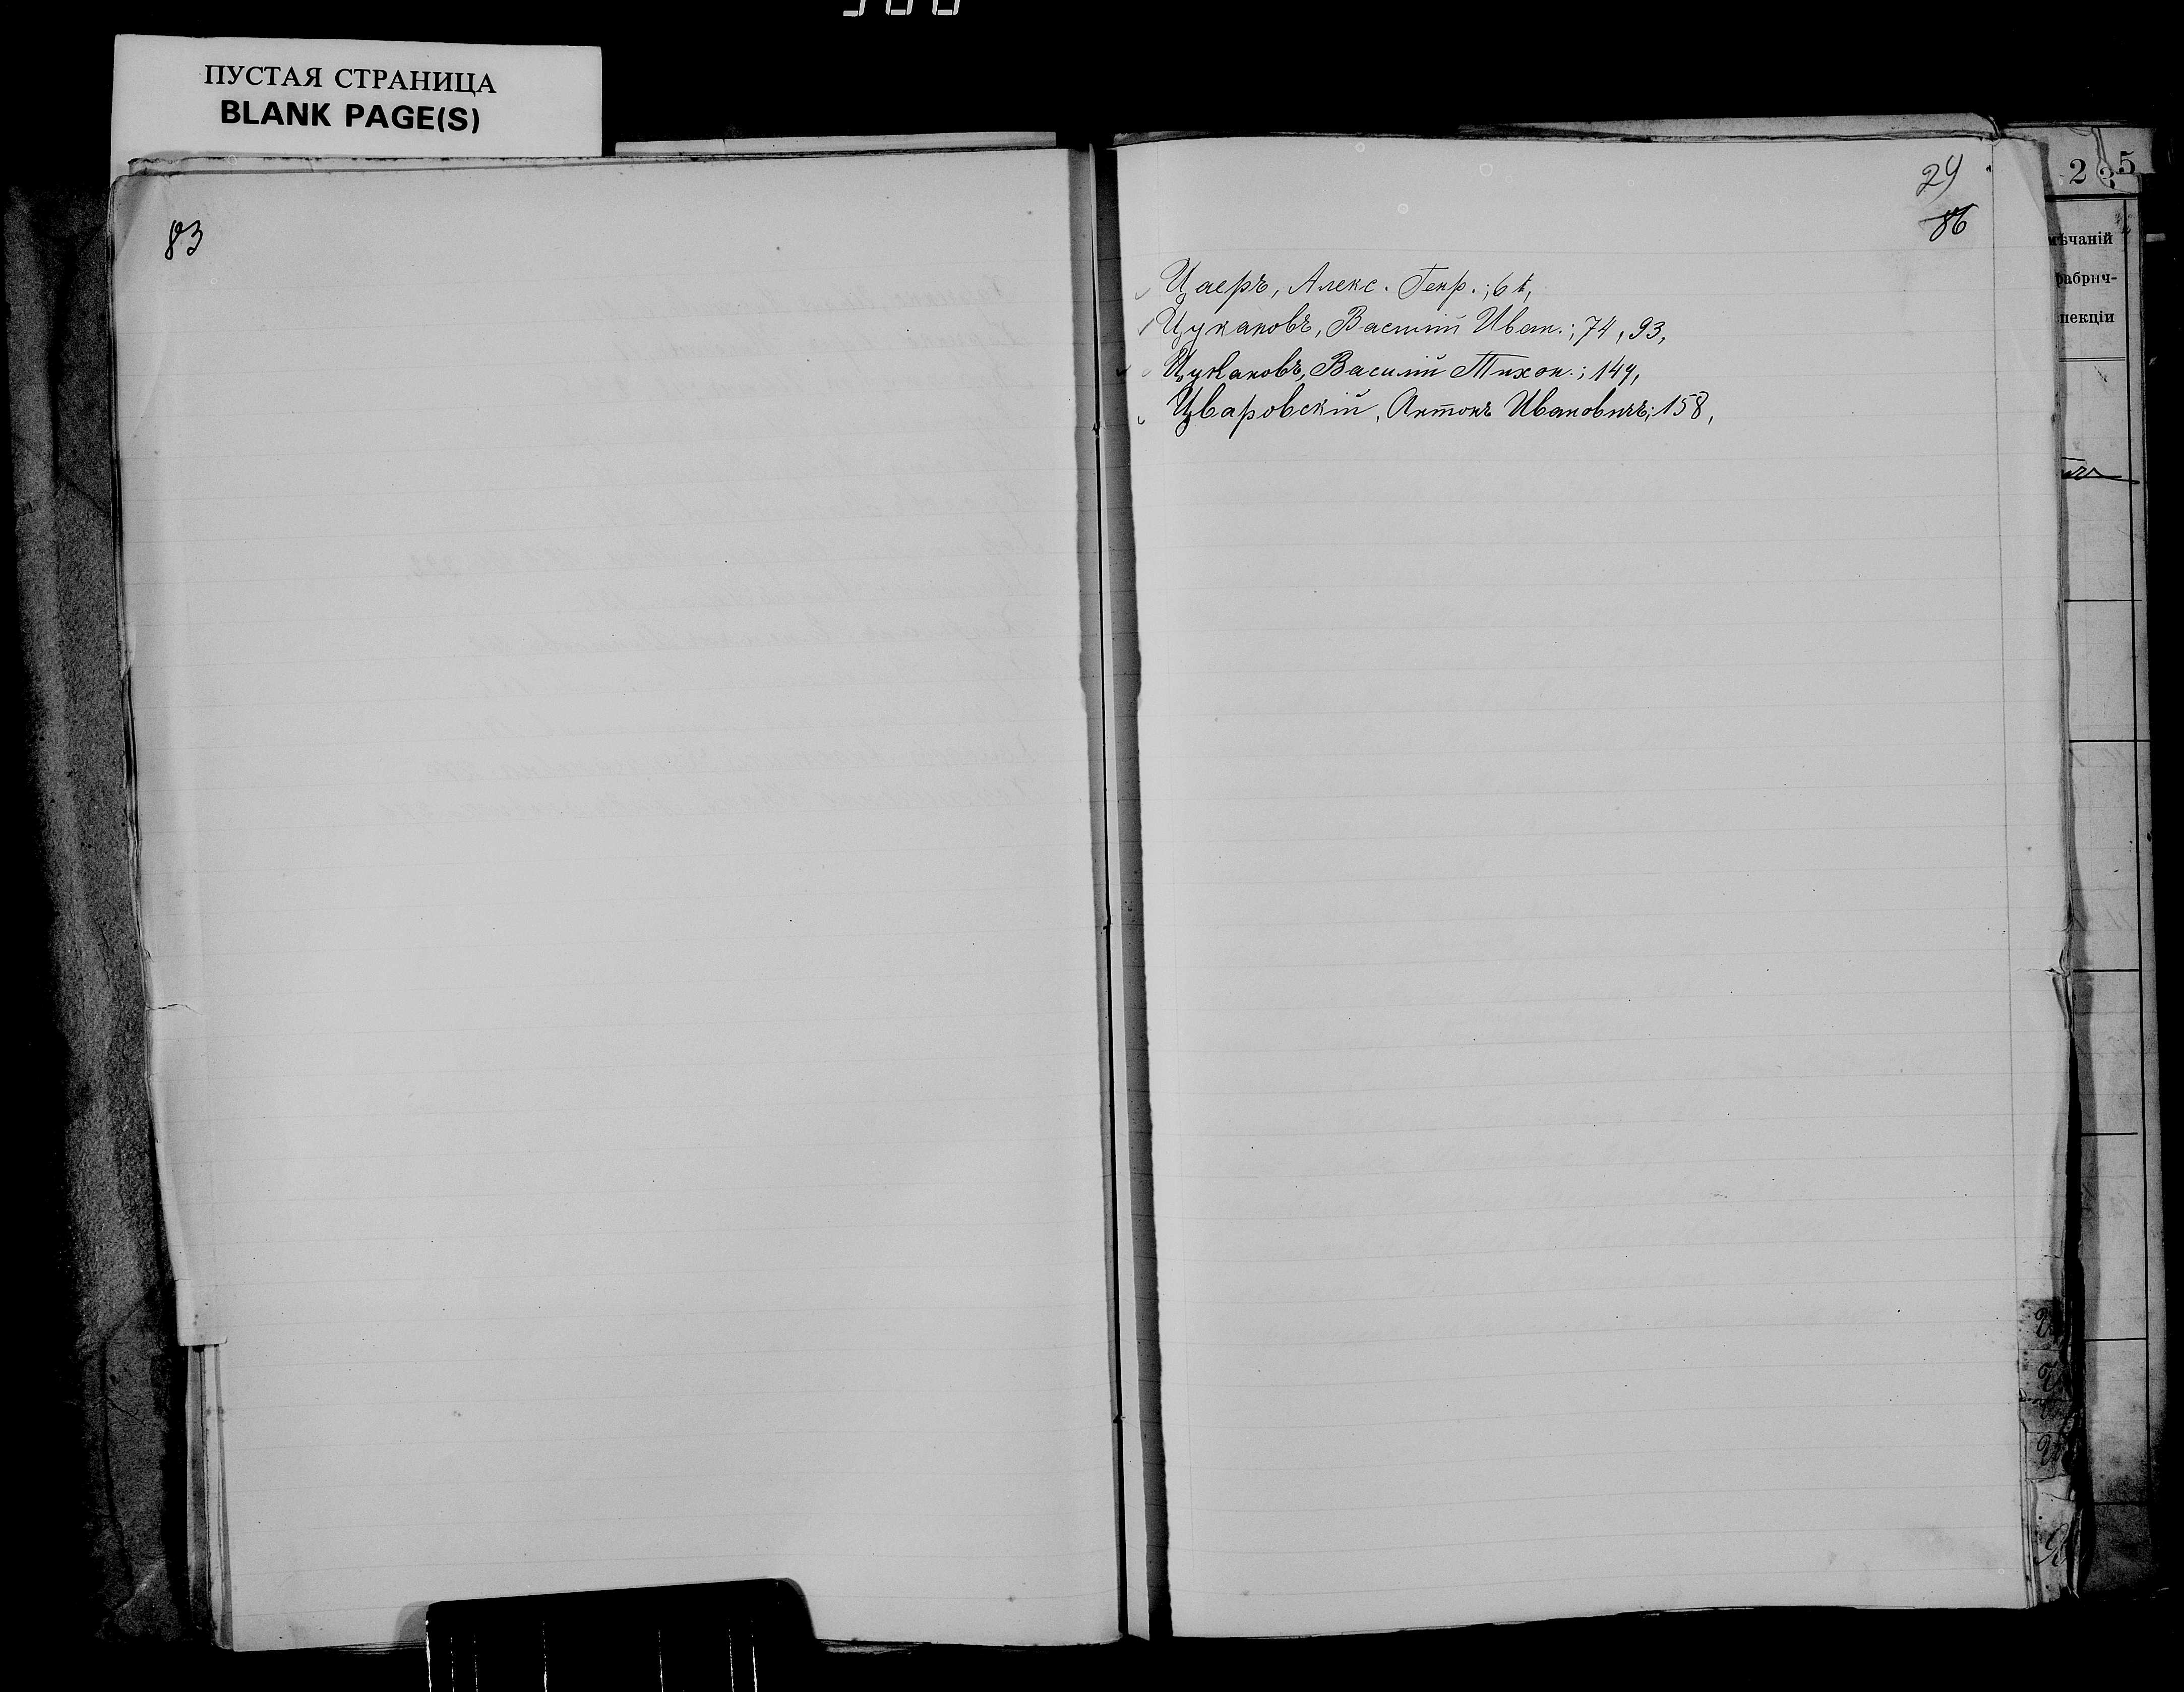 ПУСТАЯ СТРАНИЦА
BLANK PAGE(S)
83
24
86
Цаеръ, Алекс. Генр.; 61,
Цукановъ, Василій Иван.; 74, 93,
Цукановъ, Василій Тихон.; 149,
Цваровскій, Антонъ Ивановичъ; 158,
2 5
мѣчаній
фабрич-
пекціи